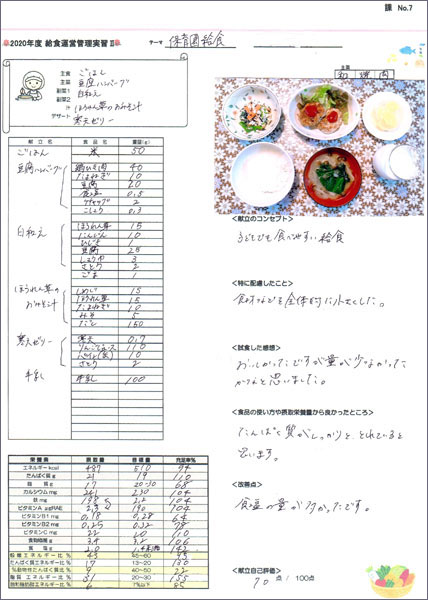 課 No.7
2020年度 給食運営管理実習Ⅱ
テーマ 保育園給食
主食 ごはん
主菜 豆腐ハンバーグ
副菜1 白和え
副菜2
汁 ほうれん草のおみそ汁
デザート 寒天ゼリー
献立名 食品名 重量(g)
ごはん 米 50
豆腐ハンバーグ 鶏ひき肉 40
たまねぎ 10
豆腐 20
塩 0.5
ケチャップ 2
こしょう 0.3
白和え ほうれん草 15
にんじん 10
ひじき 1
豆腐 25
しょうゆ 3
さとう 2
ごま 1
ほうれん草のおみそ汁 しめじ 15
ほうれん草 15
たまねぎ 10
みそ 5
だし 150
寒天ゼリー 寒天 0.7
りんごジュース 110
10
さとう 2
牛乳 牛乳 100
<献立のコンセプト>
子どもでも食べやすい給食
<特に配慮したこと>
食材などを全体的に小さくした。
<試食した感想>
おいしかったですが量が少なかったかなと思いました。
<食品の使い方や摂取栄養量から良かったところ>
たんぱく質がしっかりと、とれていると
思います。
<改善点>
食塩の量が多かったです。
<献立自己評価>
70 点 / 100点
栄養素 摂取量 目標量 充足率%
エネルギー kcal 487 510 94
たんぱく質 g 21 19 110
脂質 g 17
カルシウム mg 241 230 104
鉄 mg
ビタミンA μgRAE 190 104
ビタミンB1 mg 0.18 0.28 64
ビタミンB2 mg 0.25 0.32 78
ビタミンC mg 22 20 110
食物繊維 g
食塩 g 2.0 142
穀類エネルギー比 % 43 45~60 95
たんぱく質エネルギー比 % 17 13~20 130
%動物性たんぱく質比 % 9 40~50 22
脂質エネルギー比 % 31 20~30 155